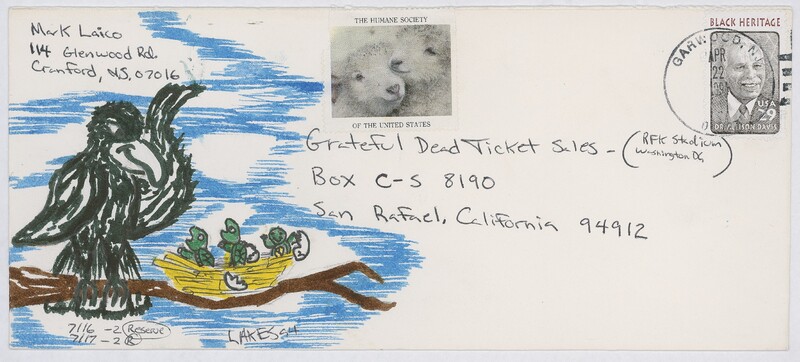 Mark Laico
114 Glenwood Rd.
Cranford, N.J. 07016
THE HUMANE SOCIETY
OF THE UNITED STATES
BLACK HERITAGE
USA
29
DR. ALLISON DAVIS
GARWOOD, N.J.
APR
22
Grateful Dead Ticket Sales - (RFK Stadium
Washington DC)
Box C-S 8190
San Rafael, California 94912
7/16 -2 Reserve
7/17 -2 R
LAKES 94